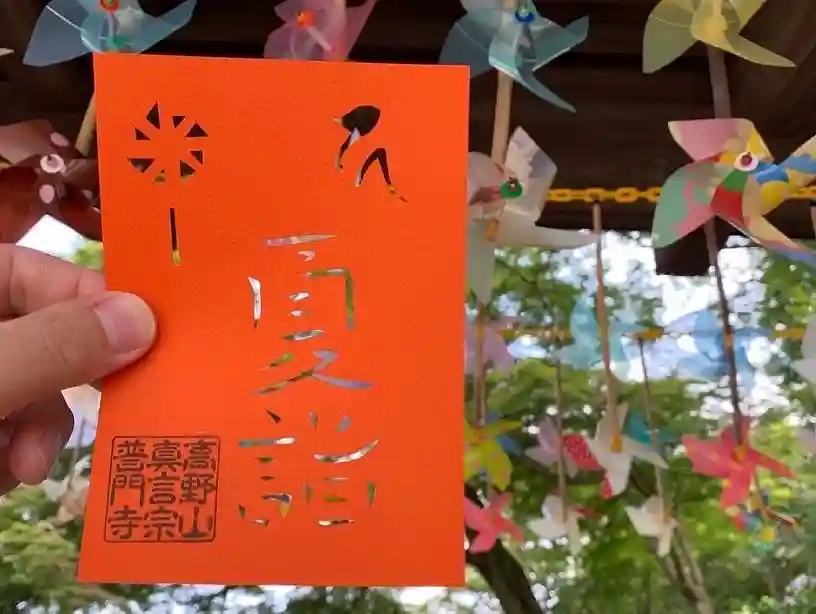 夏詣
高野山
真言宗
普門寺